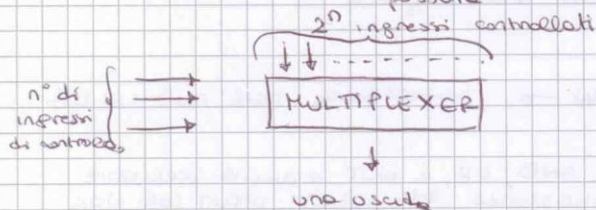 2ⁿ ingressi controllati
n° di
ingressi
di controllo
MULTIPLEXER
una uscita